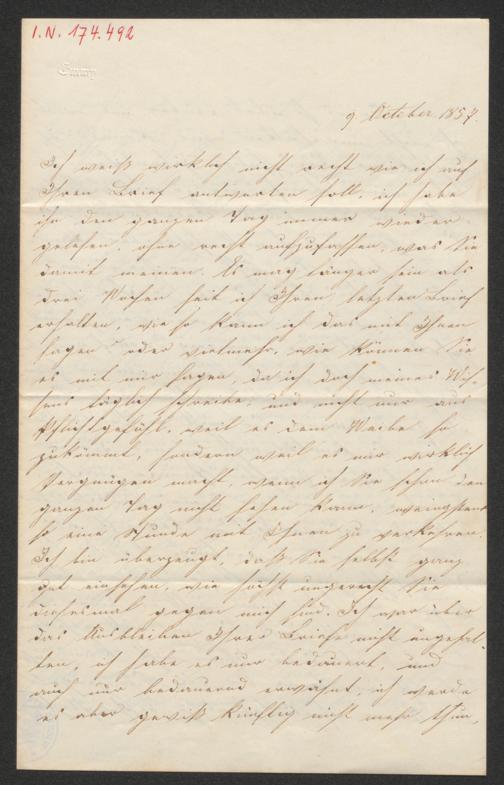 I.N. 174.492
Emmy
9 October 1857.
Ich weiß wirklich nicht recht wie ich auf
Ihren Brief antworten soll, ich habe
ihn den ganzen Tag immer wieder
gelesen, ohne recht aufzufassen, was Sie
damit meinen. Es mag länger sein als
drei Wochen seit ich Ihren letzten Brief
erhalten, wie so kann ich das mit Ihnen
sagen oder vielmehr, wie können Sie
es mit mir sagen, da ich doch meines Wis-
sens täglich schreibe, und nicht nur aus
Pflichtgefühl, weil es dem Weibe so
zukömmt, sondern weil es mir wirklich
Vergnügen macht, wenn ich Sie schon den
ganzen Tag nicht sehen kann, wenigstens
so eine Stunde mit Ihnen zu verkehren.
Ich bin überzeugt, daß Sie selbst ganz
gut einsehen, wie höchst ungerecht Sie
diesesmal gegen mich sind. Ich war über
das Ausbleiben Ihrer Briefe nicht ungehal-
ten, ich habe es nur bedauert, und
auch nur bedauernd erwähnt, ich werde
es aber gewiß künftig nicht mehr thun,